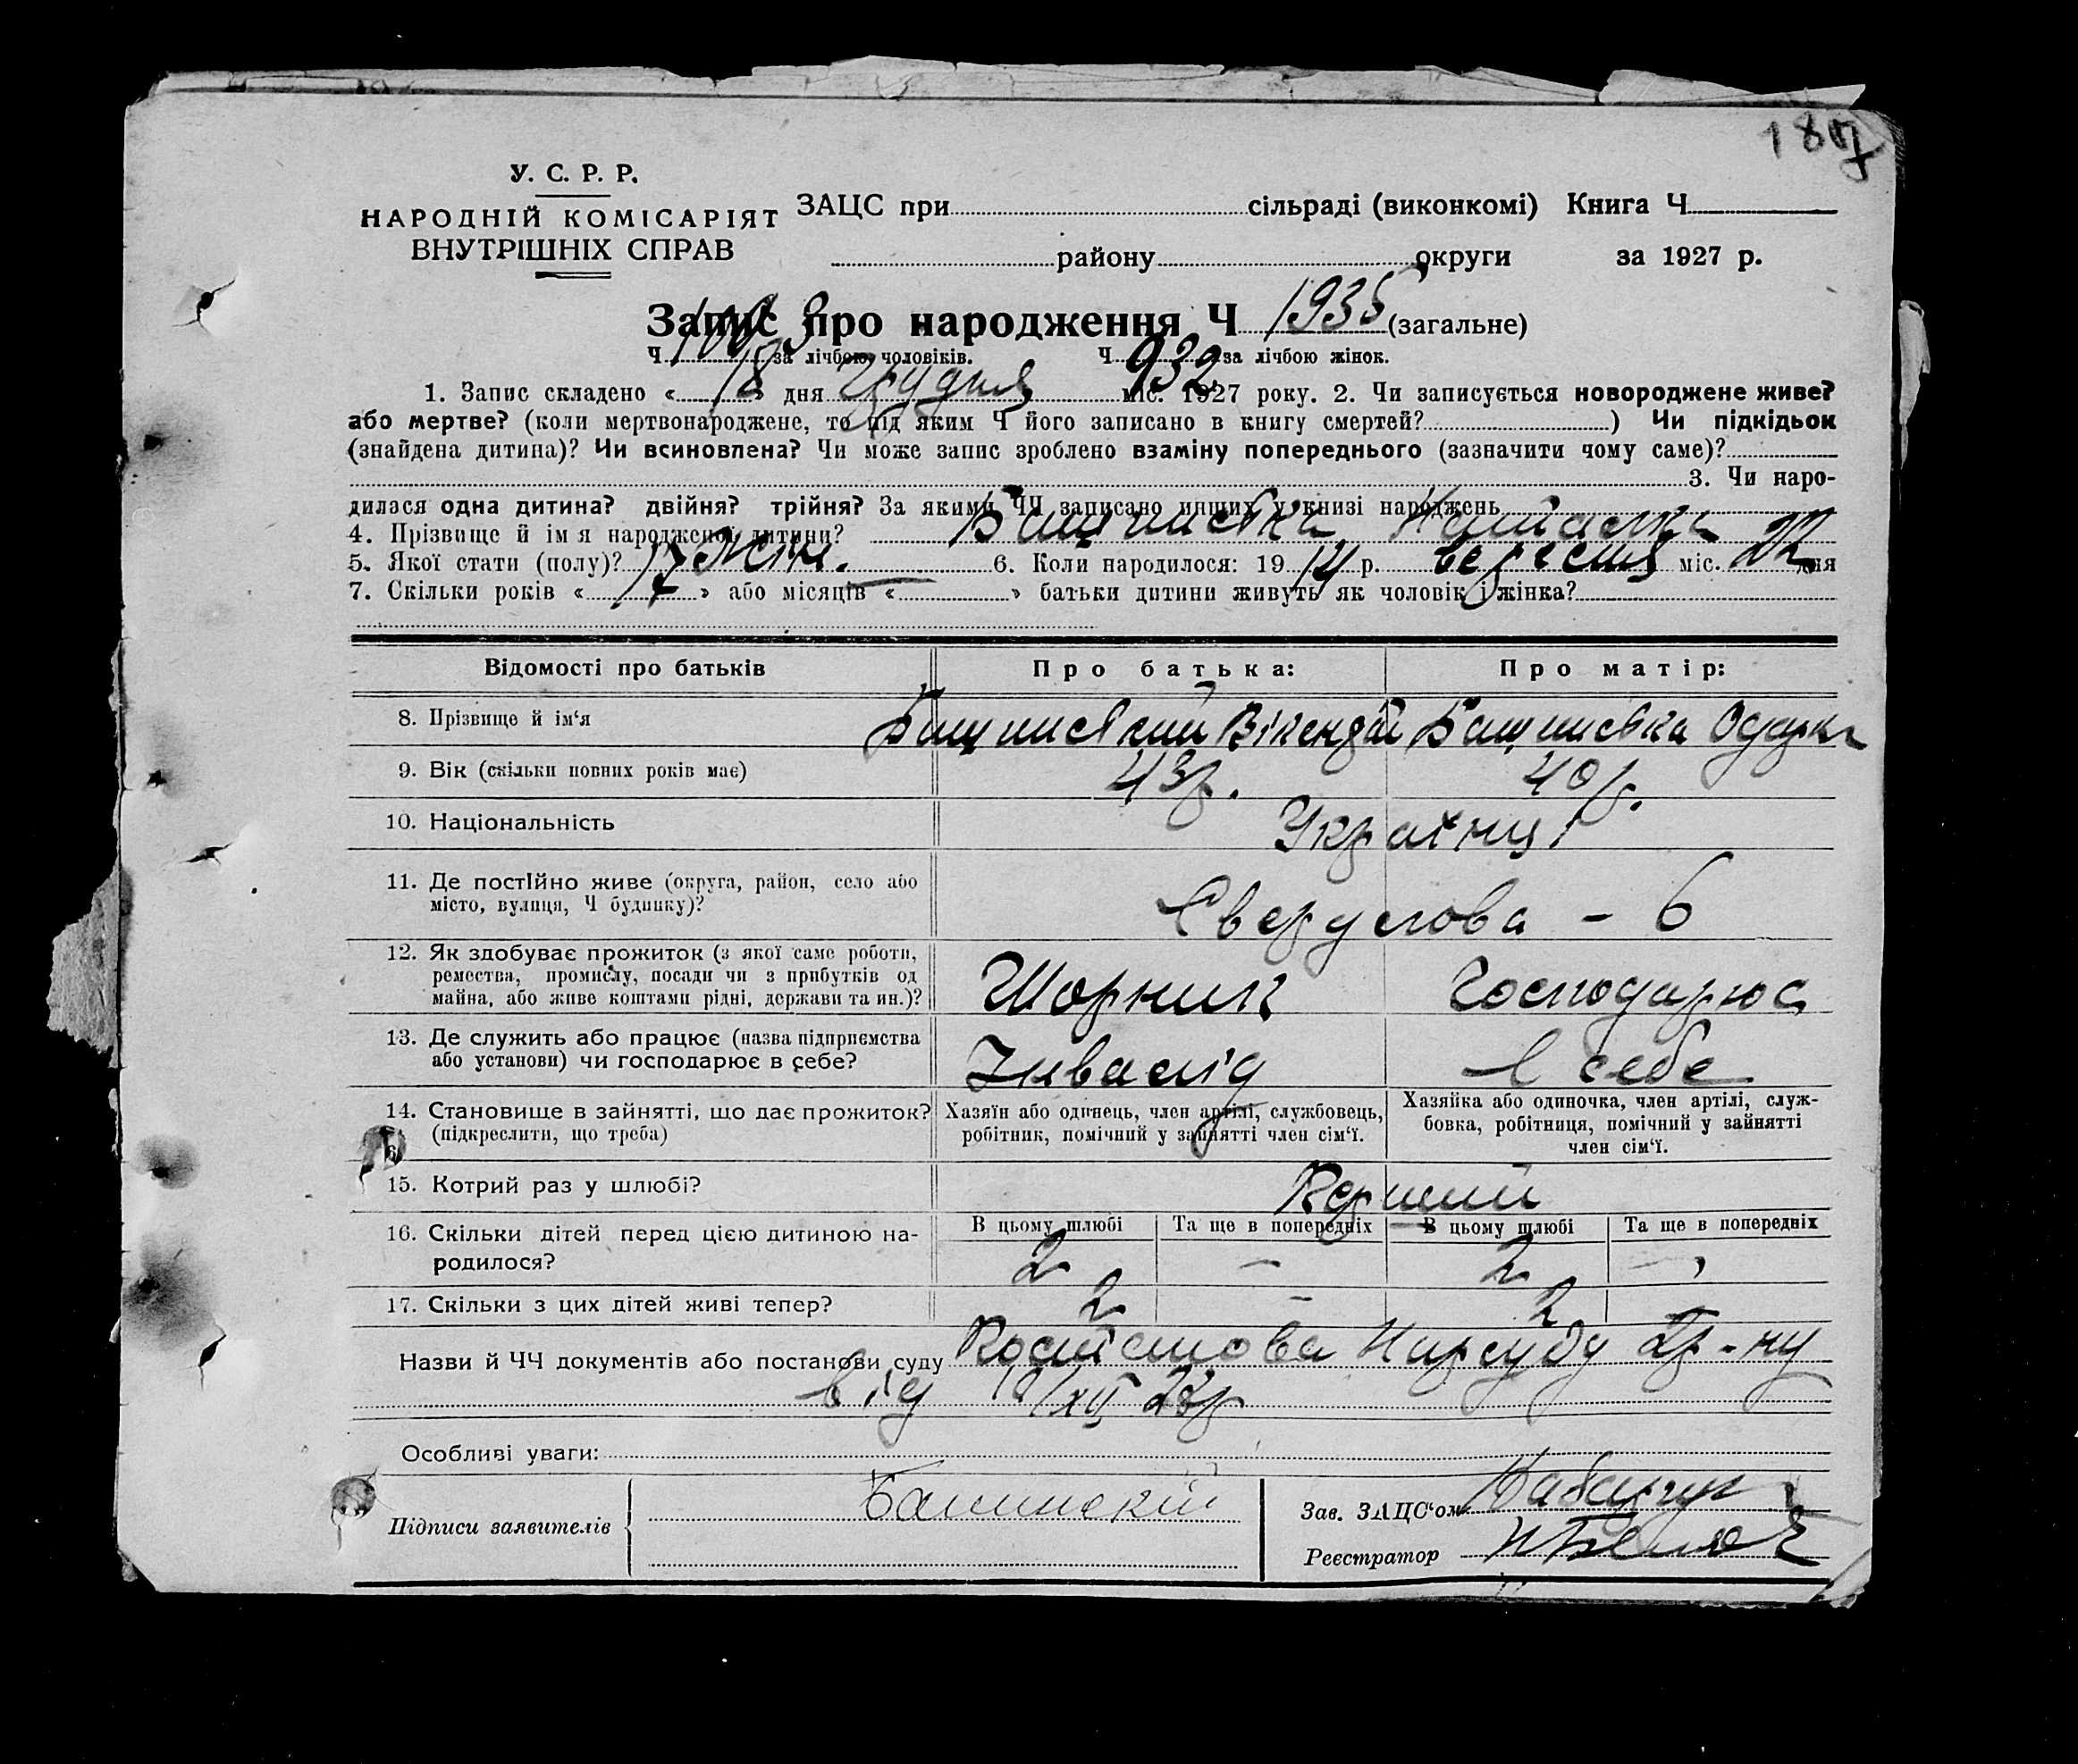 187
У. С. Р. Р.
НАРОДНІЙ КОМІСАРІЯТ
ВНУТРІШНІХ СПРАВ
ЗАЦС при сільраді (виконкомі) Книга Ч.
району округи за 1927 р.
Запис про народження Ч 1935 (загальне)
Ч 1003 за лічбою чоловіків. Ч 932 за лічбою жінок.
1. Запис складено « 18 » дня грудня міс. 1927 року. 2. Чи записується новороджене живе?
або мертве? (коли мертвонароджене, то під яким Ч його записано в книгу смертей? ) Чи підкідьок
(знайдена дитина)? Чи всиновлена? Чи може запис зроблено взаміну попереднього (зазначити чому саме)?
3. Чи наро-
дилася одна дитина? двійня? трійня? За якими ЧЧ записано инших у книзі народжень
4. Прізвище й ім я народженої дитини? Наталка
5. Якої стати (полу)? жін. 6. Коли народилося: 19 14 р. вересня міс. 22 дня
7. Скільки років « 17 » або місяців « — » батьки дитини живуть як чоловік і жінка?
Відомості про батьків
Про батька:
Про матір:
8. Прізвище й ім‘я
Вікендій
Одарка
9. Вік (скільки повних років має)
43р.
40р.
10. Національність
Українці
11. Де постійно живе (округа, район, село або
місто, вулиця, Ч будинку)?
Свердлова – 6
12. Як здобуває прожиток (з якої саме роботи,
ремества, промислу, посади чи з прибутків од
майна, або живе коштами рідні, держави та ин.)?
Шорник
Господарює
13. Де служить або працює (назва підприємства
або установи) чи господарює в себе?
Інвалід
в себе
14. Становище в зайнятті, що дає прожиток?
(підкреслити, що треба)
Хазяїн або одинець, член артілі, службовець,
робітник, помічний у зайнятті член сім‘ї.
Хазяйка або одиночка, член артілі, служ-
бовка, робітниця, помічний у зайнятті
член сім‘ї.
15. Котрий раз у шлюбі?
Перший
16. Скільки дітей перед цією дитиною на-
родилося?
В цьому шлюбі
Та ще в попередніх
В цьому шлюбі
Та ще в попередніх
2 – 2 –
17. Скільки з цих дітей живі тепер?
2 – 2
Назви й ЧЧ документів або постанови суду Постанова Нарсуду 2р-ну
від
Особливі уваги:
Підписи заявителів
Зав. ЗАЦС‘ом
Реєстратор